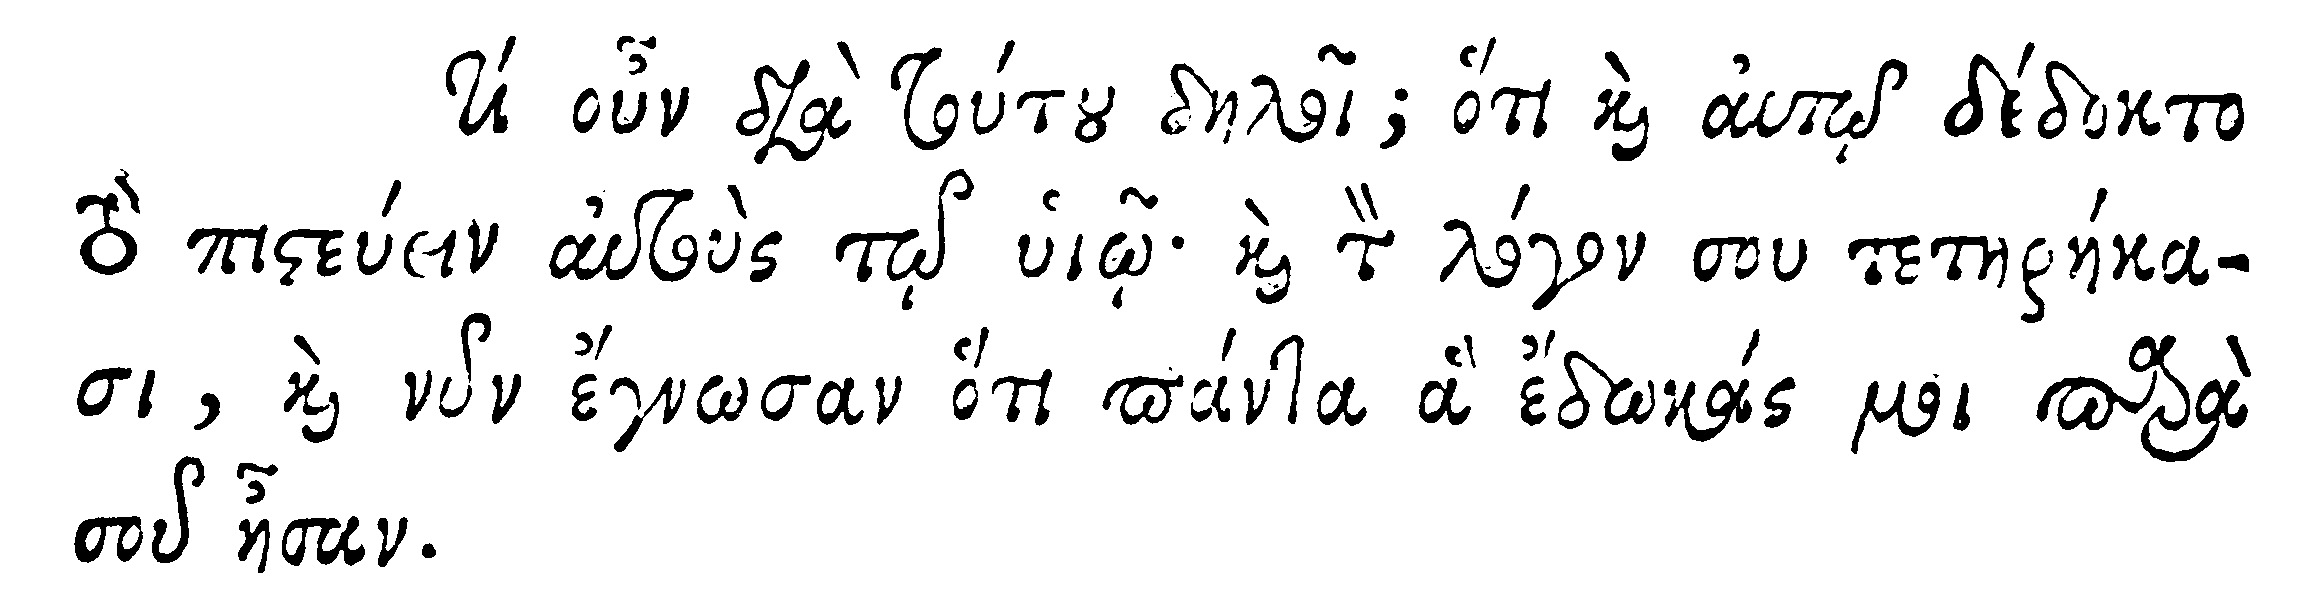 Τί οὖν διὰ τούτου δηλοῖ; ὅτι καὶ αὐτῷ δέδοκτο
τὸ πιστεύειν αὐτοὺς τῷ υἱῷ· καὶ τὸν λόγον σου τετηρήκα-
σι, καὶ νῦν ἔγνωσαν ὅτι πάντα ἃ ἔδωκάς μοι παρὰ
σοῦ ἦσαν.